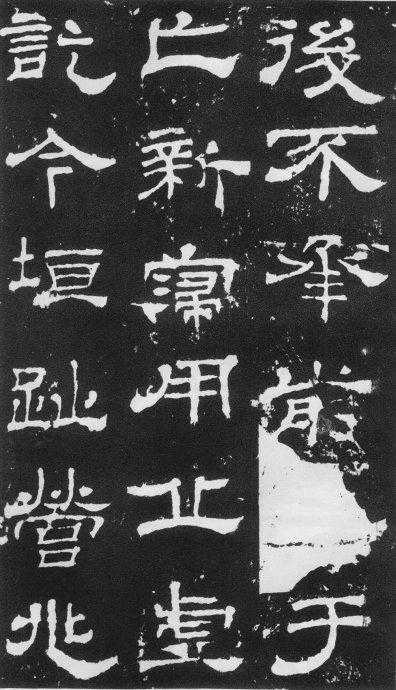 後不承前于
亡新寖用丘虛
訖今垣趾營兆